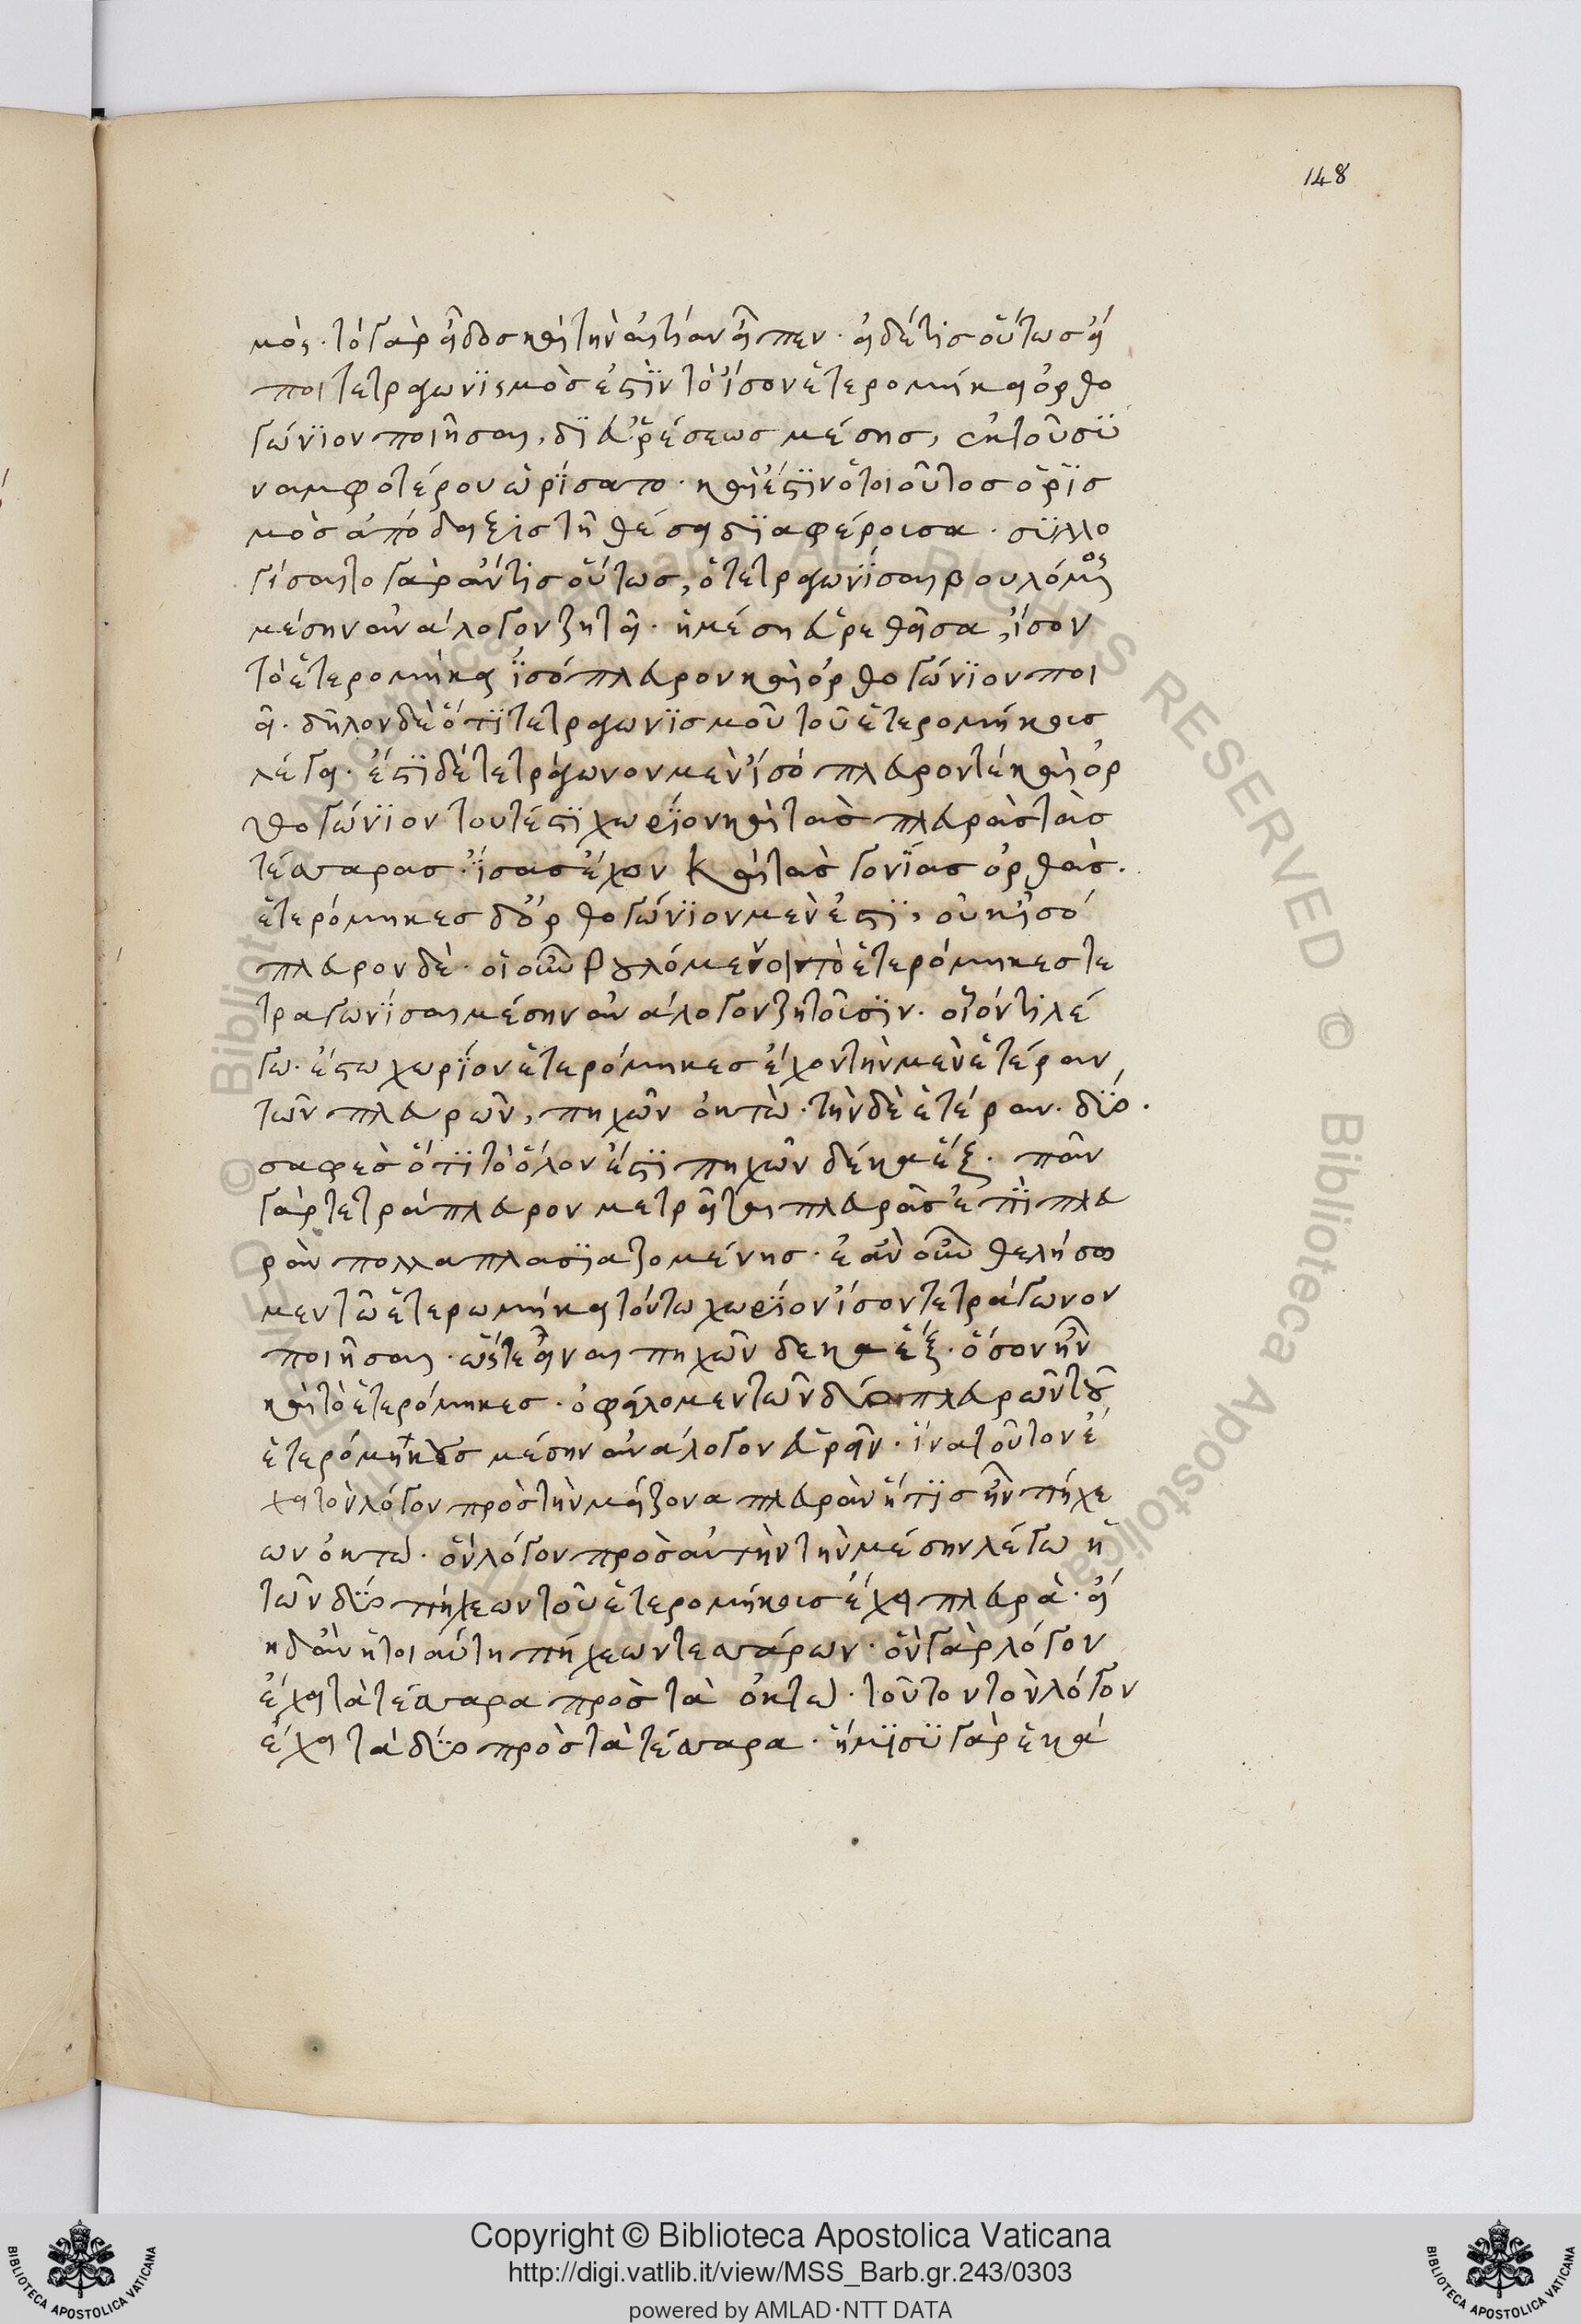 148
μός· τὸ γὰρ εἶδος καὶ τὴν αἰτίαν εἶπεν· εἰ δέ τις οὕτως εἴ
ποι τετραγωνϊσμὸς ἐστϊν τὸ ἴσον ἑτερομήκει ὀρθο
γώνϊον ποιῆσαι, δϊ εὑρέσεως μέσης, ἐκ τοῦ συ
ναμφοτέρου ὡρίσατο· καὶ ἔστϊν ὁ τοιοῦτος ὁρϊσ
μὸς ἀπόδειξις τῇ θέσει δϊαφέρουσα· συλλο
γίσαιτο γὰρ ἄν τις οὕτως, ὁ τετραγωνίσαι βουλόμενος
μέσην ἀνάλογον ζητεῖ· ἡ μέση εὑρεθεῖσα, ἴσον
τὸ ἑτερομήκει ἰσόπλευρον καὶ ὀρθογώνϊον ποι
εῖ· δῆλον δὲ ὅτϊ τετραγωνϊσμοῦ τοῦ ἑτερομήκους
λέγει· ἔστϊ δὲ τετράγωνον μὲν ἰσόπλευρόν τέ καὶ ὀρ
θογώνϊον τουτέστϊ χωρίον καὶ τὰς πλευρὰς τὰς
τέσσαρας ἴσας ἔχον καὶ τὰς γονίας ὀρθάς.
ἑτερόμηκες δ' ὀρθογώνϊον μὲν ἐστϊ, οὐκ ἰσό
πλευρον δέ· οἱ οὖν βουλόμενοι τὸ ἑτερόμηκες τε
τραγωνίσαι μέσην ἀνάλογον ζητοῦσϊν· οἷόν τι λέ
γω· ἔστω χωρίον ἑτερόμηκες ἔχον τὴν μὲν ἑτέραν,
τῶν πλευρῶν, πηχῶν ὀκτὼ· τὴν δὲ ἑτέραν· δύο.
σαφὲς ὅτϊ τὸ ὅλον ἔστϊ πηχῶν δέκα ἕξ· πᾶν
γὰρ τετράπλευρον μετρεῖται πλευρᾶς ἐπὶ πλευ
ρὰν πολλαπλασϊαζομένης· ἐὰν οὖν θελήσω
μεν τῶ ἑτερωμήκει τούτω χωρίον ἴσον τετράγωνον
ποιῆσαι· ὥστε εἶναι πηχῶν δεκα ἕξ· ὅσον ἦν
καὶ τὸ ἑτερόμηκες· ὀφείλομεν τῶν δύο πλευρῶν τοῦ
ἑτερόμήκους μέσην ἀνάλογον εὑρεῖν· ἵνα τοῦτον ἔ
χει τὸν λόγον πρὸς τὴν μείζονα πλευρὰν ἥτϊς ἦν πήχε
ων ὀκτώ· ὃν λόγον πρὸς αὐτὴν τὴν μέσην λέγω ἡ
τῶν δύο πήχεων τοῦ ἑτερομήκους ἔχει πλευρὰ· εἴ
η δ' ἂν ἡ τοιαύτη πήχεων τεσσάρων· ὃν γὰρ λόγον
ἔχει τὰ τέσσαρα πρὸς τὰ ὀκτώ· τοῦτον τὸν λόγον
ἔχει τὰ δύο πρὸς τὰ τέσσαρα· ἥμϊσυ γὰρ ἑκά
Copyright © Biblioteca Apostolica Vaticana
http://digi.vatlib.it/view/MSS_Barb.gr.243/0303
powered by AMLAD·NTT DATA